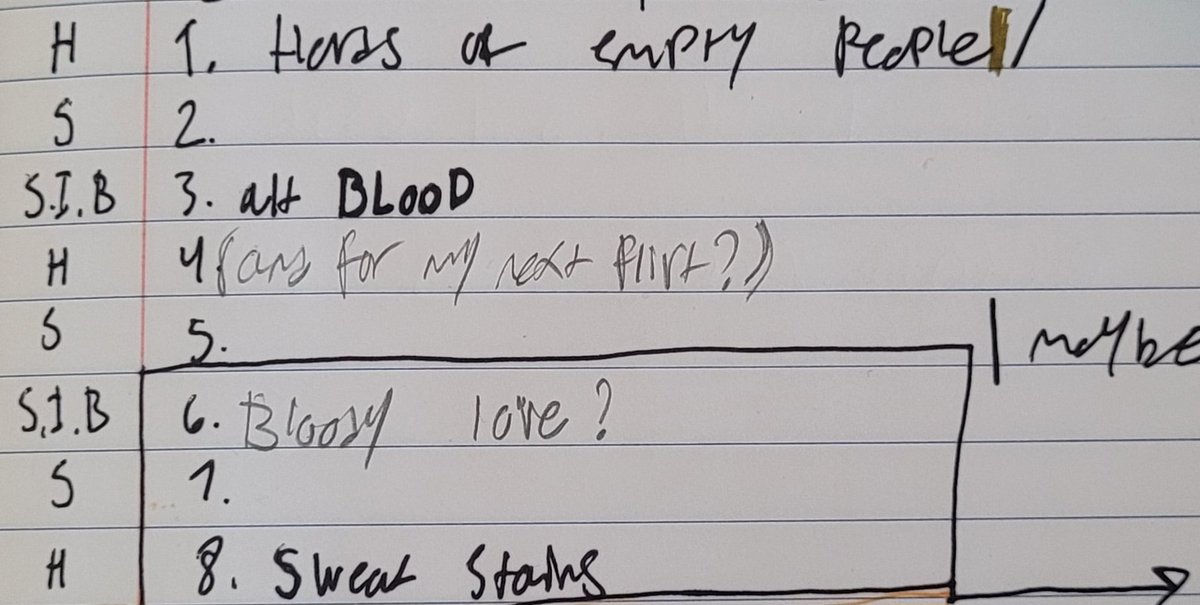 H 1. Hords of empty People /
S 2.
S.I.B 3. all BLOOD
H 4 (ans for my next flirt?)
S 5.
| maybe
S.I.B 6. Bloody love?
S 7.
H 8. Sweat Stains